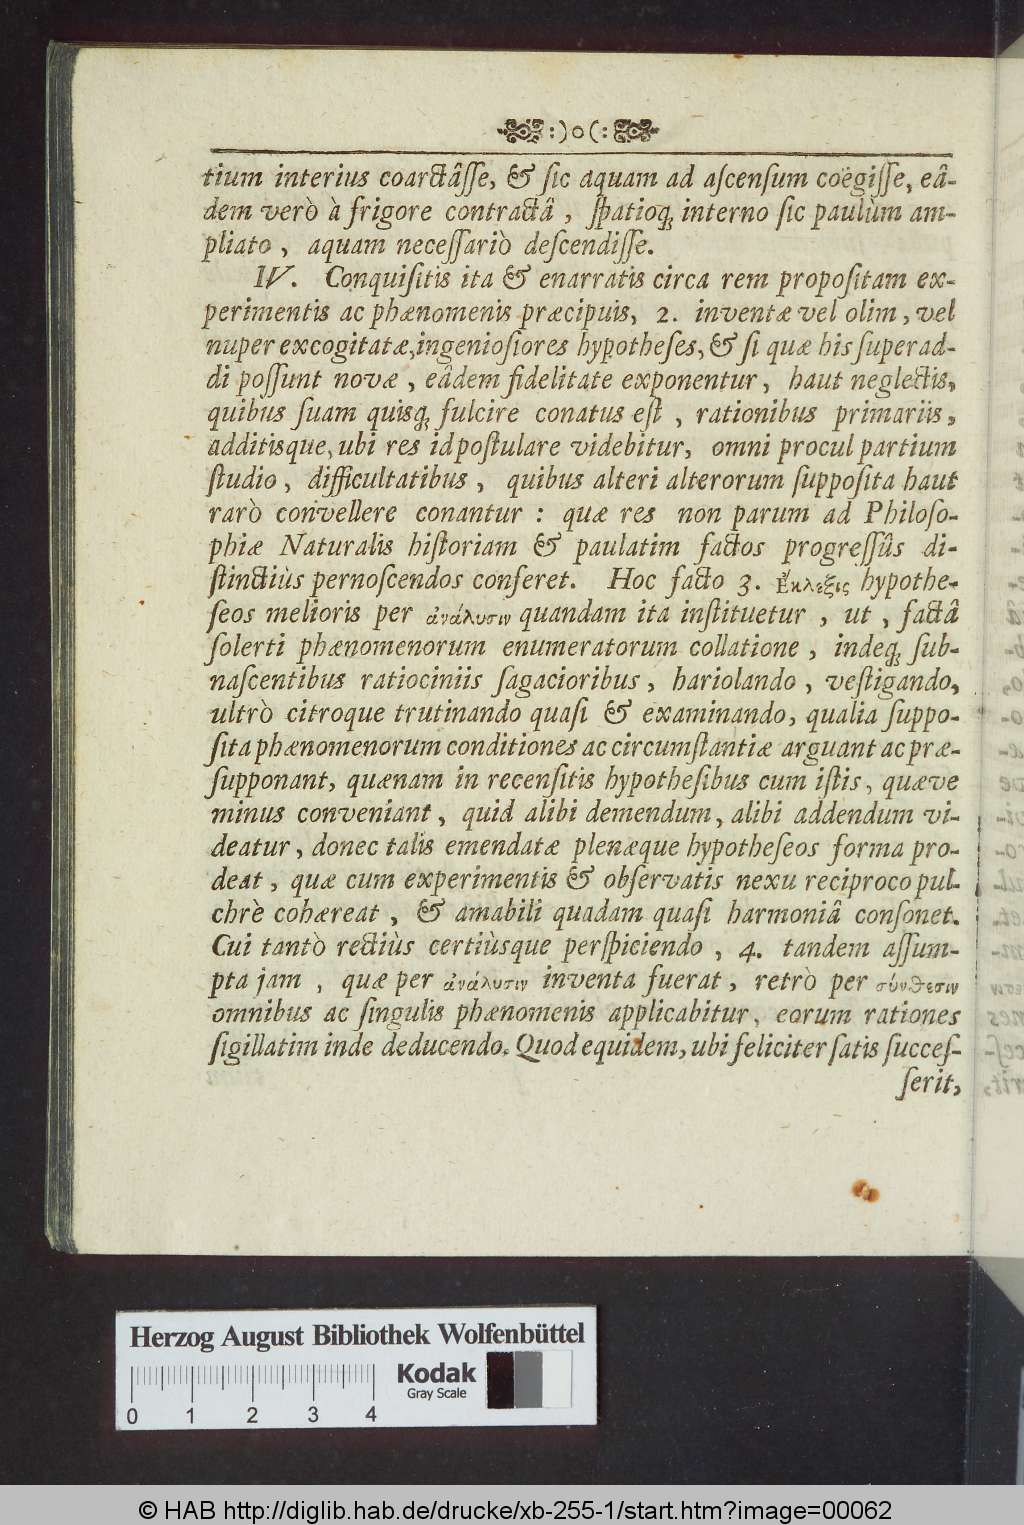 :)o(:
tium interius coarctâſſe, & ſic aquam ad aſcenſum coëgiſſe, eâ-
dem verò à frigore contractâ, ſpatioq; interno ſic paulùm am-
pliato, aquam neceſſariò deſcendiſſe.
IV. Conquiſitis ita & enarratis circa rem propoſitam ex-
perimentis ac phænomenis præcipuis, 2. inventæ vel olim, vel
nuper excogitatæ, ingenioſiores hypotheſes, & ſi quæ his ſuperad-
di poſſunt novæ, eâdem fidelitate exponentur, haut neglectis,
quibus ſuam quisq; fulcire conatus eſt, rationibus primariis,
additisque, ubi res id poſtulare videbitur, omni procul partium
ſtudio, difficultatibus, quibus alteri alterorum ſuppoſita haut
rarò convellere conantur: quæ res non parum ad Philoſo-
phiæ Naturalis hiſtoriam & paulatim factos progreſſûs di-
ſtinctiùs pernoſcendos conferet. Hoc facto 3. Ἔκλεξις hypothe-
ſeos melioris per ἀνάλυσιν quandam ita inſtituetur, ut, factâ
ſolerti phænomenorum enumeratorum collatione, indeq; ſub-
naſcentibus ratiociniis ſagacioribus, hariolando, veſtigando,
ultrò citroque trutinando quaſi & examinando, qualia ſuppo-
ſita phænomenorum conditiones ac circumſtantiæ arguant ac præ-
ſupponant, quænam in recenſitis hypotheſibus cum iſtis, quæve
minus conveniant, quid alibi demendum, alibi addendum vi-
deatur, donec talis emendatæ plenæque hypotheſeos forma pro-
deat, quæ cum experimentis & obſervatis nexu reciproco pul-
chrè cohæreat, & amabili quadam quaſi harmoniâ conſonet.
Cui tantò rectiùs certiùsque perſpiciendo, 4. tandem aſſum-
pta jam, quæ per ἀνάλυσιν inventa fuerat, retrò per σύνθεσιν
omnibus ac ſingulis phænomenis applicabitur, eorum rationes
ſigillatim inde deducendo. Quod equidem, ubi feliciter ſatis ſucceſ-
ſerit,
Herzog August Bibliothek Wolfenbüttel
Kodak
Gray Scale
0 1 2 3 4
© HAB http://diglib.hab.de/drucke/xb-255-1/start.htm?image=00062